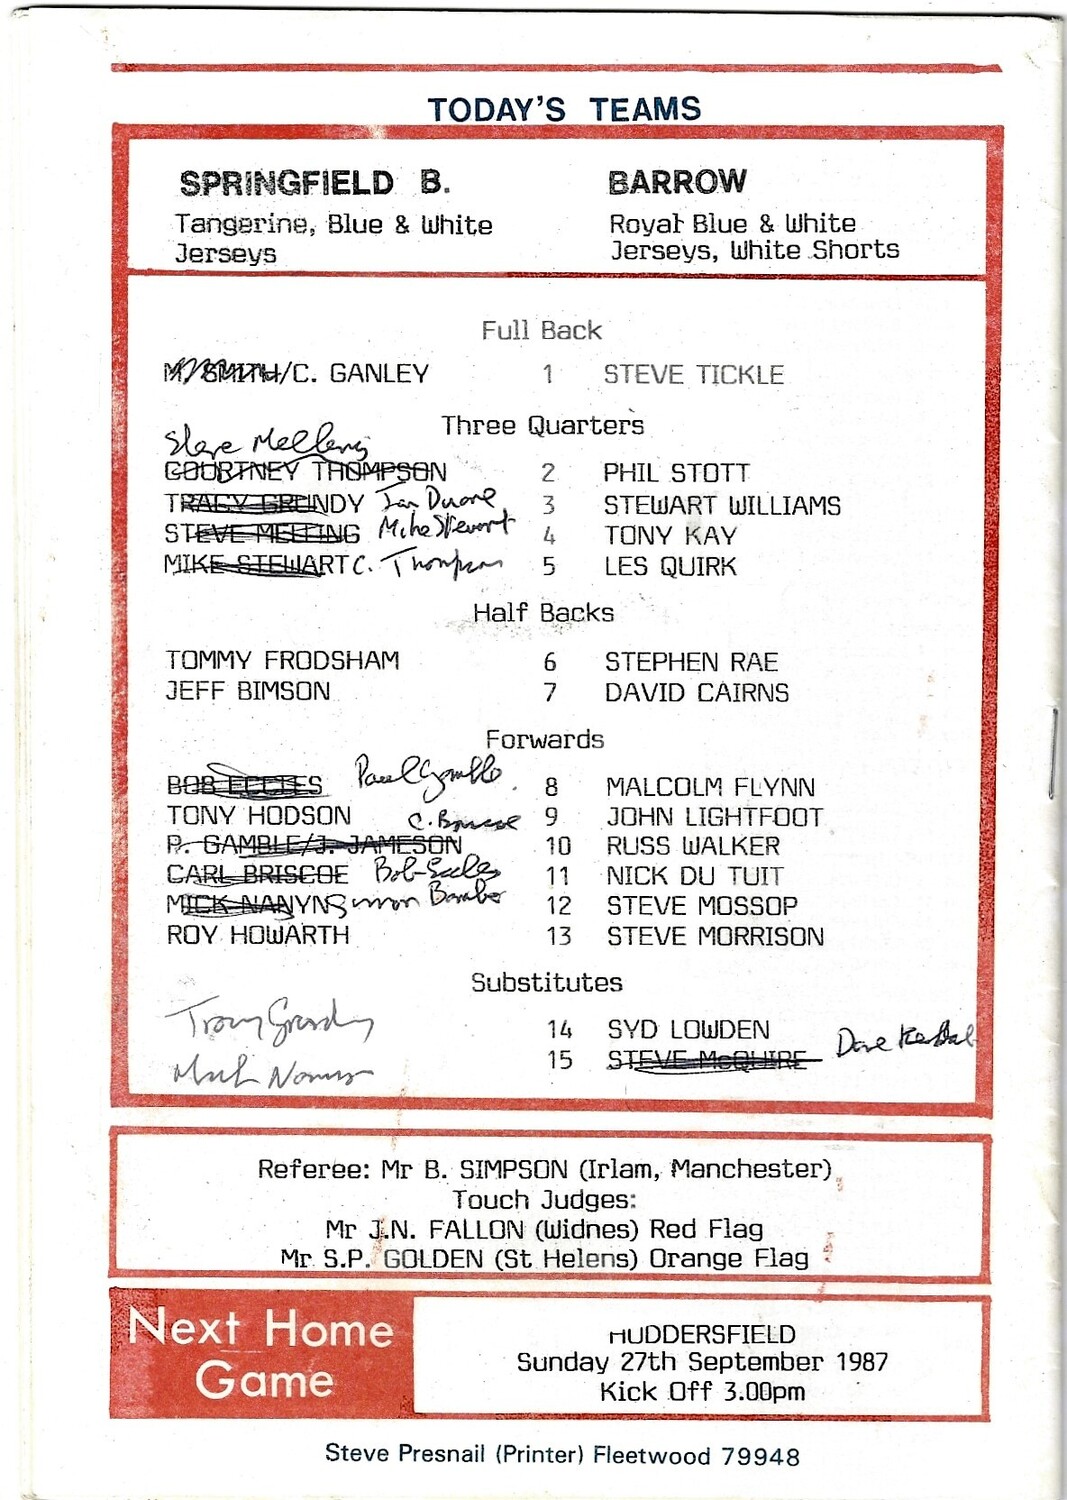 TODAY'S TEAMS
SPRINGFIELD B. BARROW
Tangerine, Blue & White Royal Blue & White
Jerseys Jerseys, White Shorts
Full Back
M. SMITH/C. GANLEY 1 STEVE TICKLE
Three Quarters
Steve Melling
COURTNEY THOMPSON 2 PHIL STOTT
TRACY GRUNDY Ian Duane 3 STEWART WILLIAMS
STEVE MELLING Mike Stewart 4 TONY KAY
MIKE STEWART C. Thompson 5 LES QUIRK
Half Backs
TOMMY FRODSHAM 6 STEPHEN RAE
JEFF BIMSON 7 DAVID CAIRNS
Forwards
BOB ECCLES Paul Gamble 8 MALCOLM FLYNN
TONY HODSON 9 JOHN LIGHTFOOT
C. Briscoe
P. GAMBLE/J. JAMESON 10 RUSS WALKER
CARL BRISCOE Bob Eccles 11 NICK DU TUIT
MICK NANYN Simon Bamber 12 STEVE MOSSOP
ROY HOWARTH 13 STEVE MORRISON
Substitutes
Tracy Grundy 14 SYD LOWDEN
15 STEVE McQUIRE Dave Kendal
Referee: Mr B. SIMPSON (Irlam, Manchester)
Touch Judges:
Mr J.N. FALLON (Widnes) Red Flag
Mr S.P. GOLDEN (St Helens) Orange Flag
Next Home
Game
HUDDERSFIELD
Sunday 27th September 1987
Kick Off 3.00pm
Steve Presnail (Printer) Fleetwood 79948